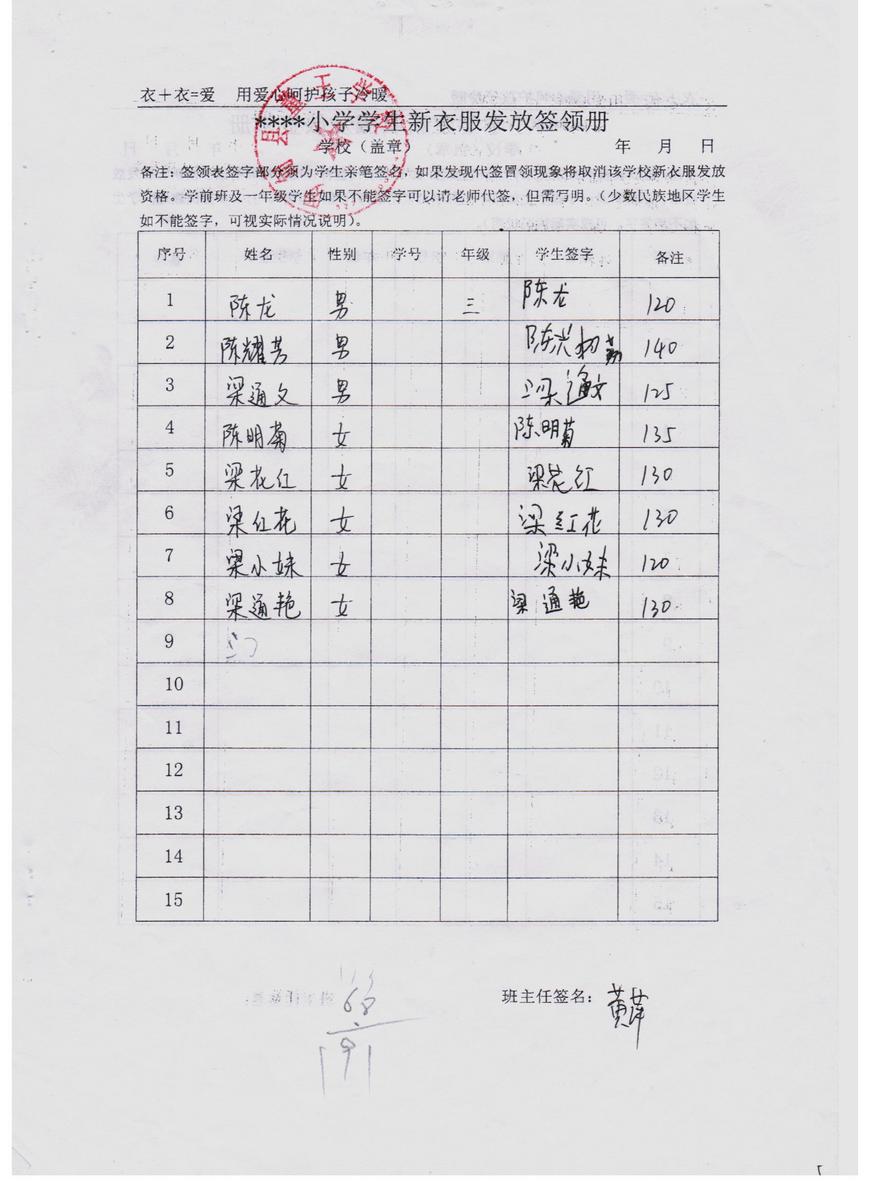 衣＋衣=爱 用爱心呵护孩子冷暖
****小学学生新衣服发放签领册
学校（盖章） 年 月 日
备注：签领表签字部分须为学生亲笔签名，如果发现代签冒领现象将取消该学校新衣服发放
资格。学前班及一年级学生如果不能签字可以请老师代签，但需写明。（少数民族地区学生
如不能签字，可视实际情况说明）。
序号 姓名 性别 学号 年级 学生签字 备注
1 陈龙 男 三 陈龙 120
2 陈耀芳 男 140
3 梁通文 男 梁通文 125
4 陈明菊 女 陈明菊 135
5 梁花红 女 梁花红 130
6 梁红花 女 梁红花 130
7 梁小妹 女 梁小妹 120
8 梁通艳 女 梁通艳 130
9
10
11
12
13
14
15
班主任签名：黄萍
68
91